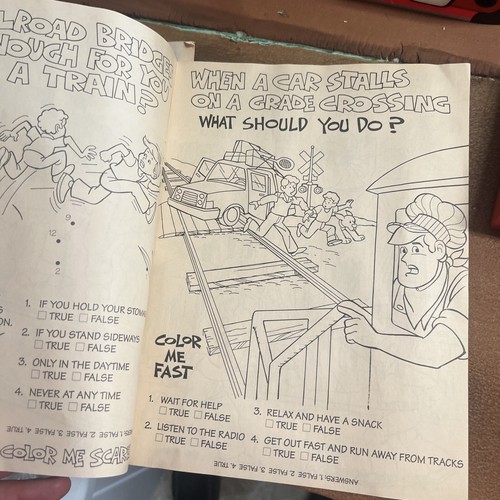 LROAD BRIDGE
NOUGH FOR YOU
A TRAIN?
9
12
2
1. IF YOU HOLD YOUR STOMA
TRUE FALSE
ON.
2. IF YOU STAND SIDEWAYS
TRUE FALSE
3. ONLY IN THE DAYTIME
TRUE FALSE
4. NEVER AT ANY TIME
TRUE FALSE
1. FALSE 2. FALSE 3. FALSE 4. TRUE
COLOR ME SCAR
WHEN A CAR STALLS
ON A GRADE CROSSING
WHAT SHOULD YOU DO?
COLOR
ME
FAST
1. WAIT FOR HELP
TRUE FALSE
2. LISTEN TO THE RADIO
TRUE FALSE
3. RELAX AND HAVE A SNACK
TRUE FALSE
4. GET OUT FAST AND RUN AWAY FROM TRACKS
TRUE FALSE
ANSWERS: 1. FALSE 2. FALSE 3. FALSE 4. TRUE